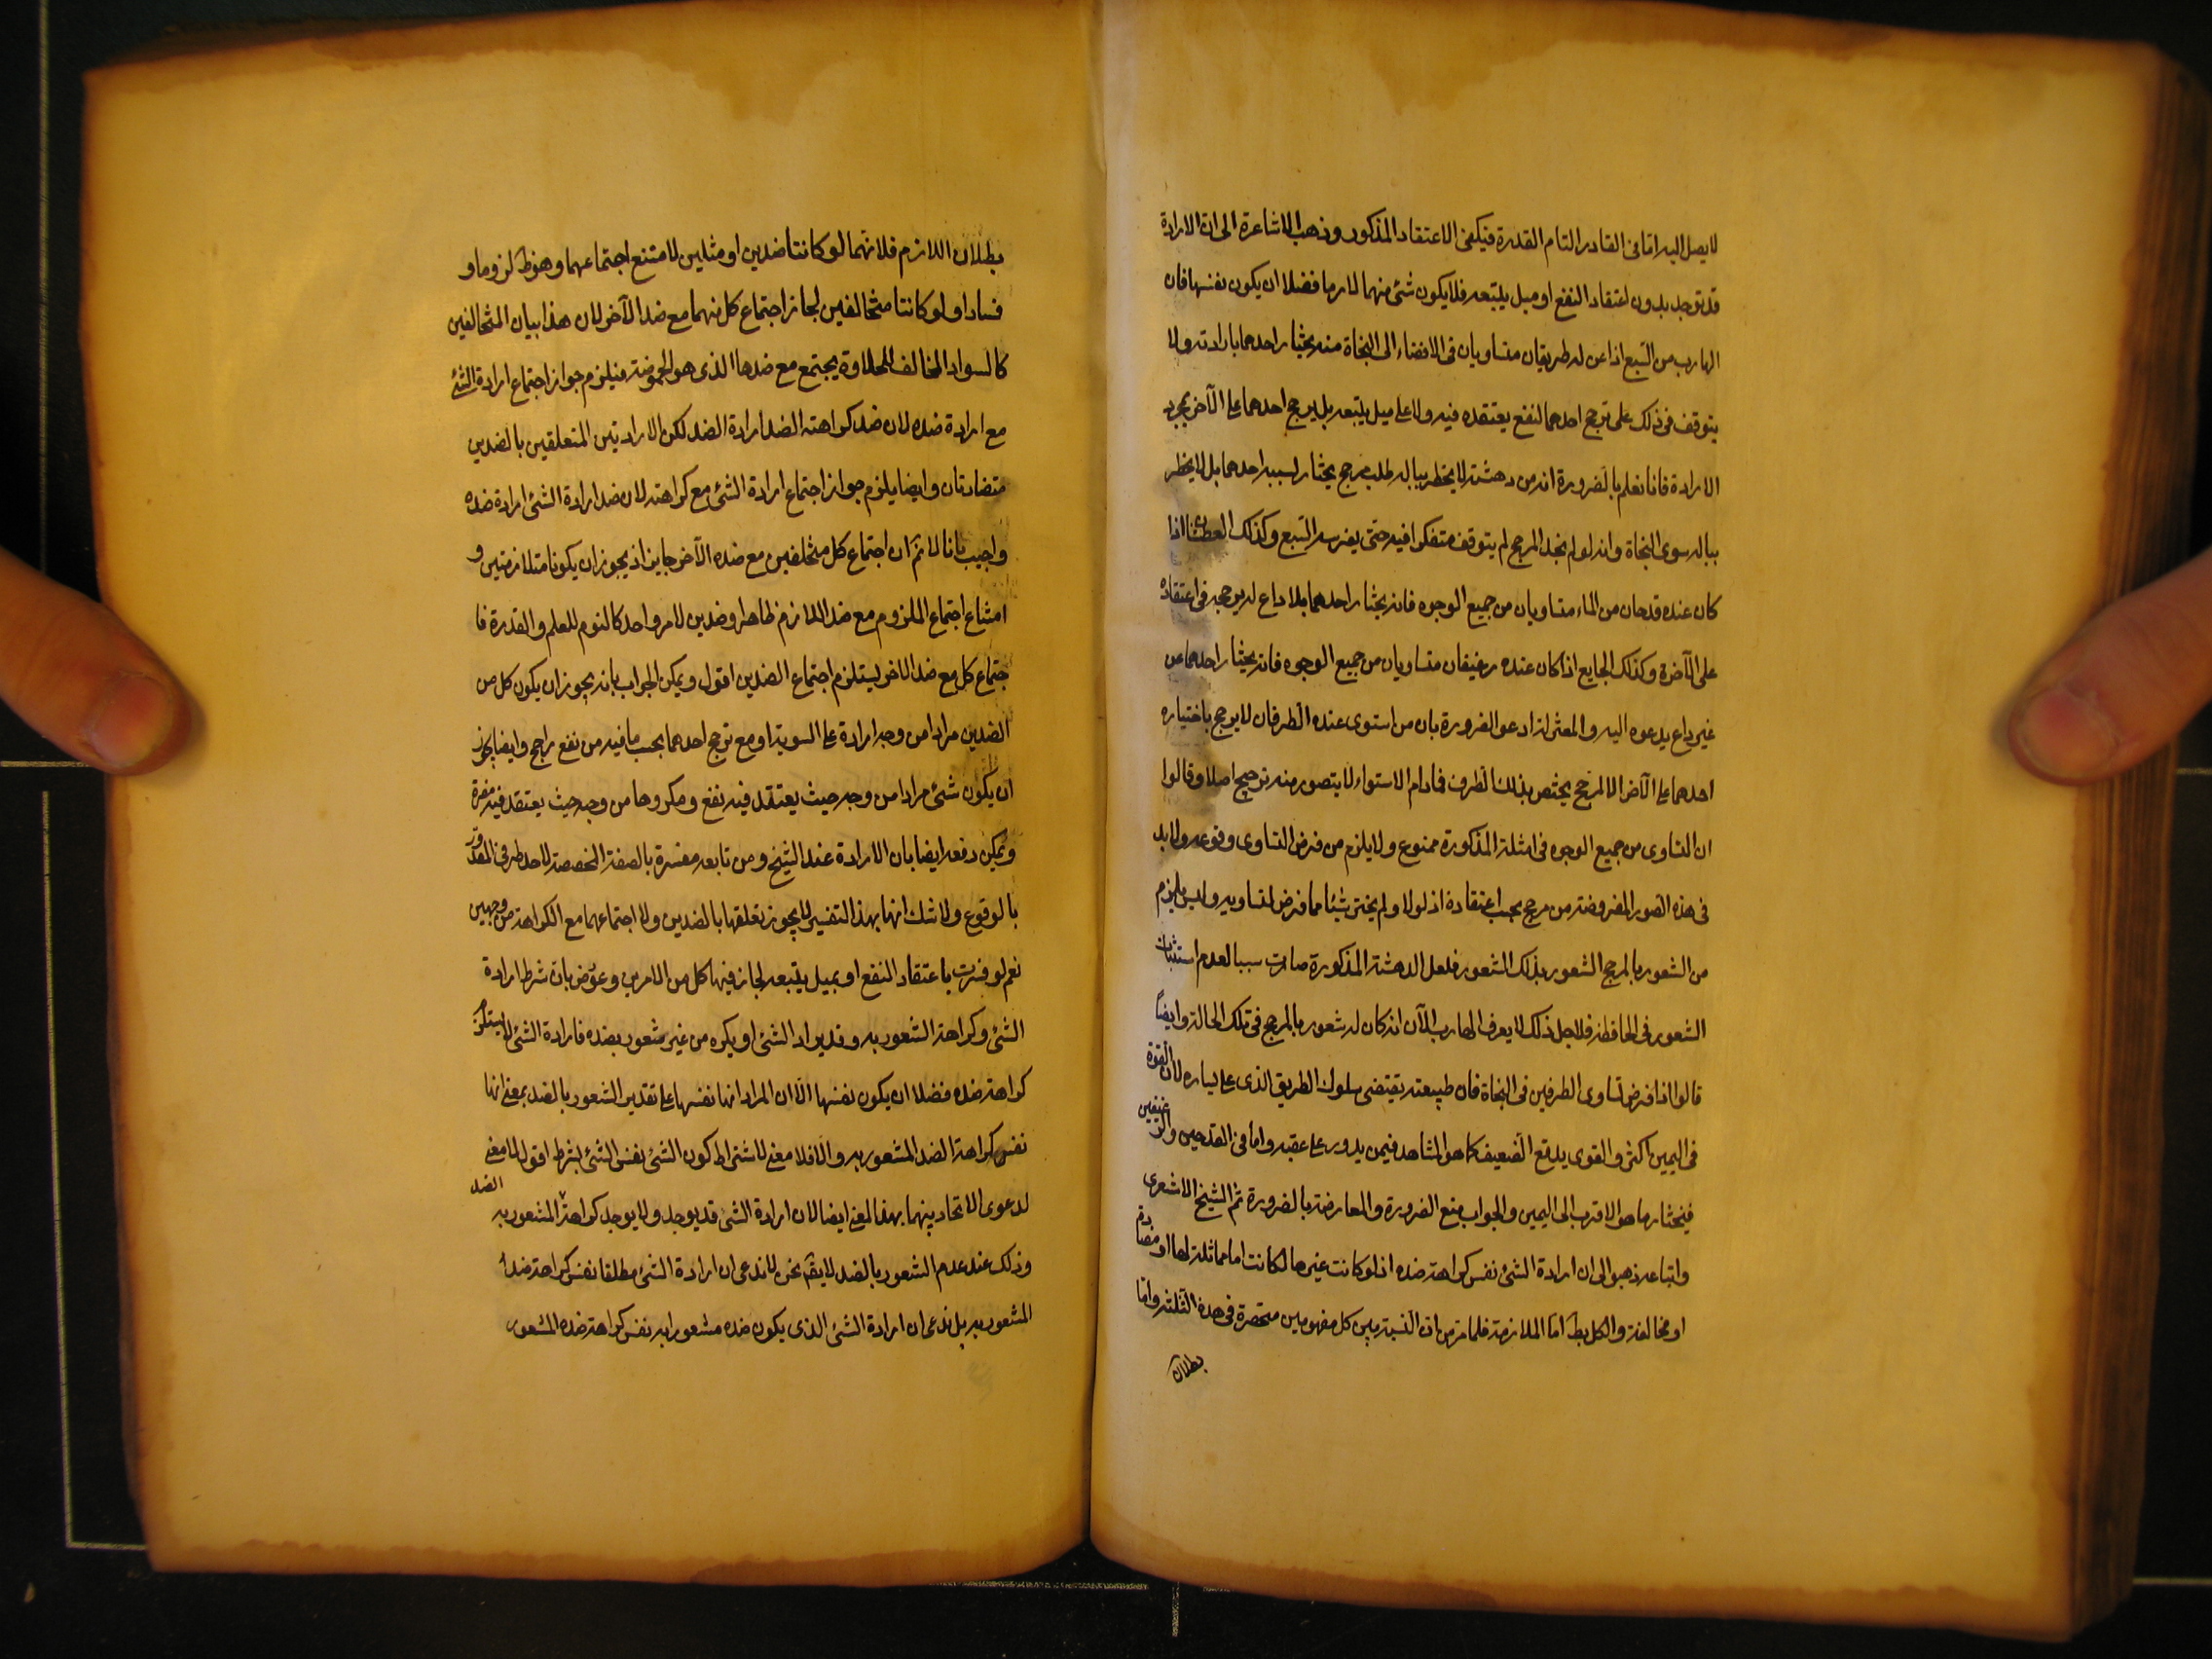 لا يصل اليه اما فى القادر التام القدرة فيكفى الاعتقاد المذكور وذهب الاشاعرة الى ان الارادة
قد توجد بدون اعتقاد النفع او ميل يتبعه فلا يكون شئ منهما لازما فضلا ان يكون نفسها فان
الهارب من السبع اذا عن له طريقان متساويان فى الافضاء الى النجاة منه يختار احدهما بارادته ولا
يتوقف فى ذلك على ترجح احدهما لنفع يعتقده فيه ولا على ميل يتبعه بل يرجح احدهما على الآخر بمجرد
الارادة فانا نعلم بالضرورة انه من دهشته لا يخطر بباله طلب مرجح يختار لسببه احدهما بل لا يخطر
بباله سوى النجاة وانه لو لم يجد المرجح لم يتوقف متفكرا فيه حتى يفترسه السبع وكذلك العطشان اذا
كان عنده قدحان من الماء متساويان من جميع الوجوه فانه يختار احدهما بلا داع له يرجحه فى اعتقاده
على الآخر وكذلك الجايع اذا كان عنده رغيفان متساويان من جميع الوجوه فانه يختار احدهما من
غير داع يدعوه اليه والمعتزلة ادعوا الضرورة بان من استوى عنده الطرفان لا يرجح باختياره
احدهما على الآخر الا لمرجح يختص بذلك الطرف فمادام الاستواء لا يتصور منه ترجيح اصلا وقالوا
ان التساوى من جميع الوجوه فى امثلة المذكورة ممنوع ولا يلزم من فرض التساوى وقوعه ولا بد
فى هذه الصور المفروضة من مرجح بحسب اعتقاده اذ لولا ولم يختر شيئا مما فرض تساويه وليس يلزم
من الشعور بالمرجح الشعور بذلك الشعور فلعل الدهشة المذكورة صارت سببا لعدم استثبات
الشعور فى الحافظة فلاجل ذلك لا يعرف الهارب الآن انه كان له شعور بالمرجح فى تلك الحالة وايضاً
قالوا اذا فرض تساوى الطرفين فى النجاة فان طبيعته يقتضى سلوك الطريق الذى على يساره لان القوة
فى اليمين اكثر والقوى يدفع الضعيف كما هو المشاهد فيمن يدور على عقبه واما فى القدحين والرغيفين
فيختار ما هو الاقرب الى اليمين والجواب منع الضرورة والمعارضة بالضرورة ثم الشيخ الاشعرى
واتباعه ذهبوا الى ان ارادة الشئ نفس كراهة ضده اذ لو كانت غيرها لكانت اما مماثلة لها او مضادة
او مخالفة والكل بط اما الملازمة فلما مر من ان النسبة بين كل مفهومين منحصرة فى هذه الثلثة واما
بطلان
بطلان اللازم فلانهما لو كانتا ضدين او مثلين لامتنع اجتماعهما وهو ظ لزوما و
فسادا ولو كانتا متخالفين لجاز اجتماع كل منهما مع ضد الآخر لان هذا بيان المتخالفين
كالسواد المخالف للحلاوة يجتمع مع ضدها الذى هو الحموضة فيلزم جواز اجتماع ارادة الشئ
مع ارادة ضده لان ضد كراهته الضد ارادة الضد لكن الارادتين المتعلقين بالضدين
متضادتان وايضا يلزم جواز اجتماع ارادة الشئ مع كراهته لان ضد ارادة الشئ ارادة ضده
واجيب بانا لا نم ان اجتماع كل متخلفين مع ضده الآخر جايز اذ يجوز ان يكونا متلازمتين و
امتناع اجتماع الملزوم مع ضد اللازم ظاهر او ضدين لامر واحد كالنوم للعلم والقدرة فا
جتماع كل مع ضد الاخر يستلزم اجتماع الضدين اقول ويمكن الجواب بانه يجوز ان يكون كل من
الضدين مرادا من وجه ارادة على السوية او مع ترجح احدهما بحسب ما فيه من نفع راجح وايضا يجوز
ان يكون شئ مرادا من وجه حيث يعتقد فيه نفع ومكروها من وجه حيث يعتقد فيه مضرة
ويمكن دفعه ايضا بان الارادة عند الشيخ ومن تابعه مفسرة بالصفة المخصصة لاحد طرفى المقدور
بالوقوع ولا شك انها بهذا التفسير لا يجوز تعلقها بالضدين ولا اجتماعهما مع الكراهة من وجهين
نعم لو فسرت باعتقاد النفع او بميل يتبعه لجاز فيها كل من الامرين وعوض بان شرط ارادة
الشئ وكراهة الشعور به وقد يراد الشئ او يكره من غير شعور بضده فارادة الشئ لا يستلزم
كراهة ضده فضلا ان يكون نفسها الا ان المراد انها نفسها على تقدير الشعور بالضد بمعنى انها
نفس كراهة الضد المشعور به والا فلا معنى لاشتراط كون الشئ نفس الشئ بشرط اقول لا معنى
لدعوى الاتحاد بينهما بهذا المعنى ايضا لان ارادة الشئ قد يوجد ولا يوجد كراهة الضد المشعور به
وذلك عند عدم الشعور بالضد لا يقم نحن لا ندعى ان ارادة الشئ مطلقا نفس كراهة ضد
المشعور به بل ندعى ان ارادة الشئ الذى يكون ضده مشعورا به نفس كراهة ضده المشعور